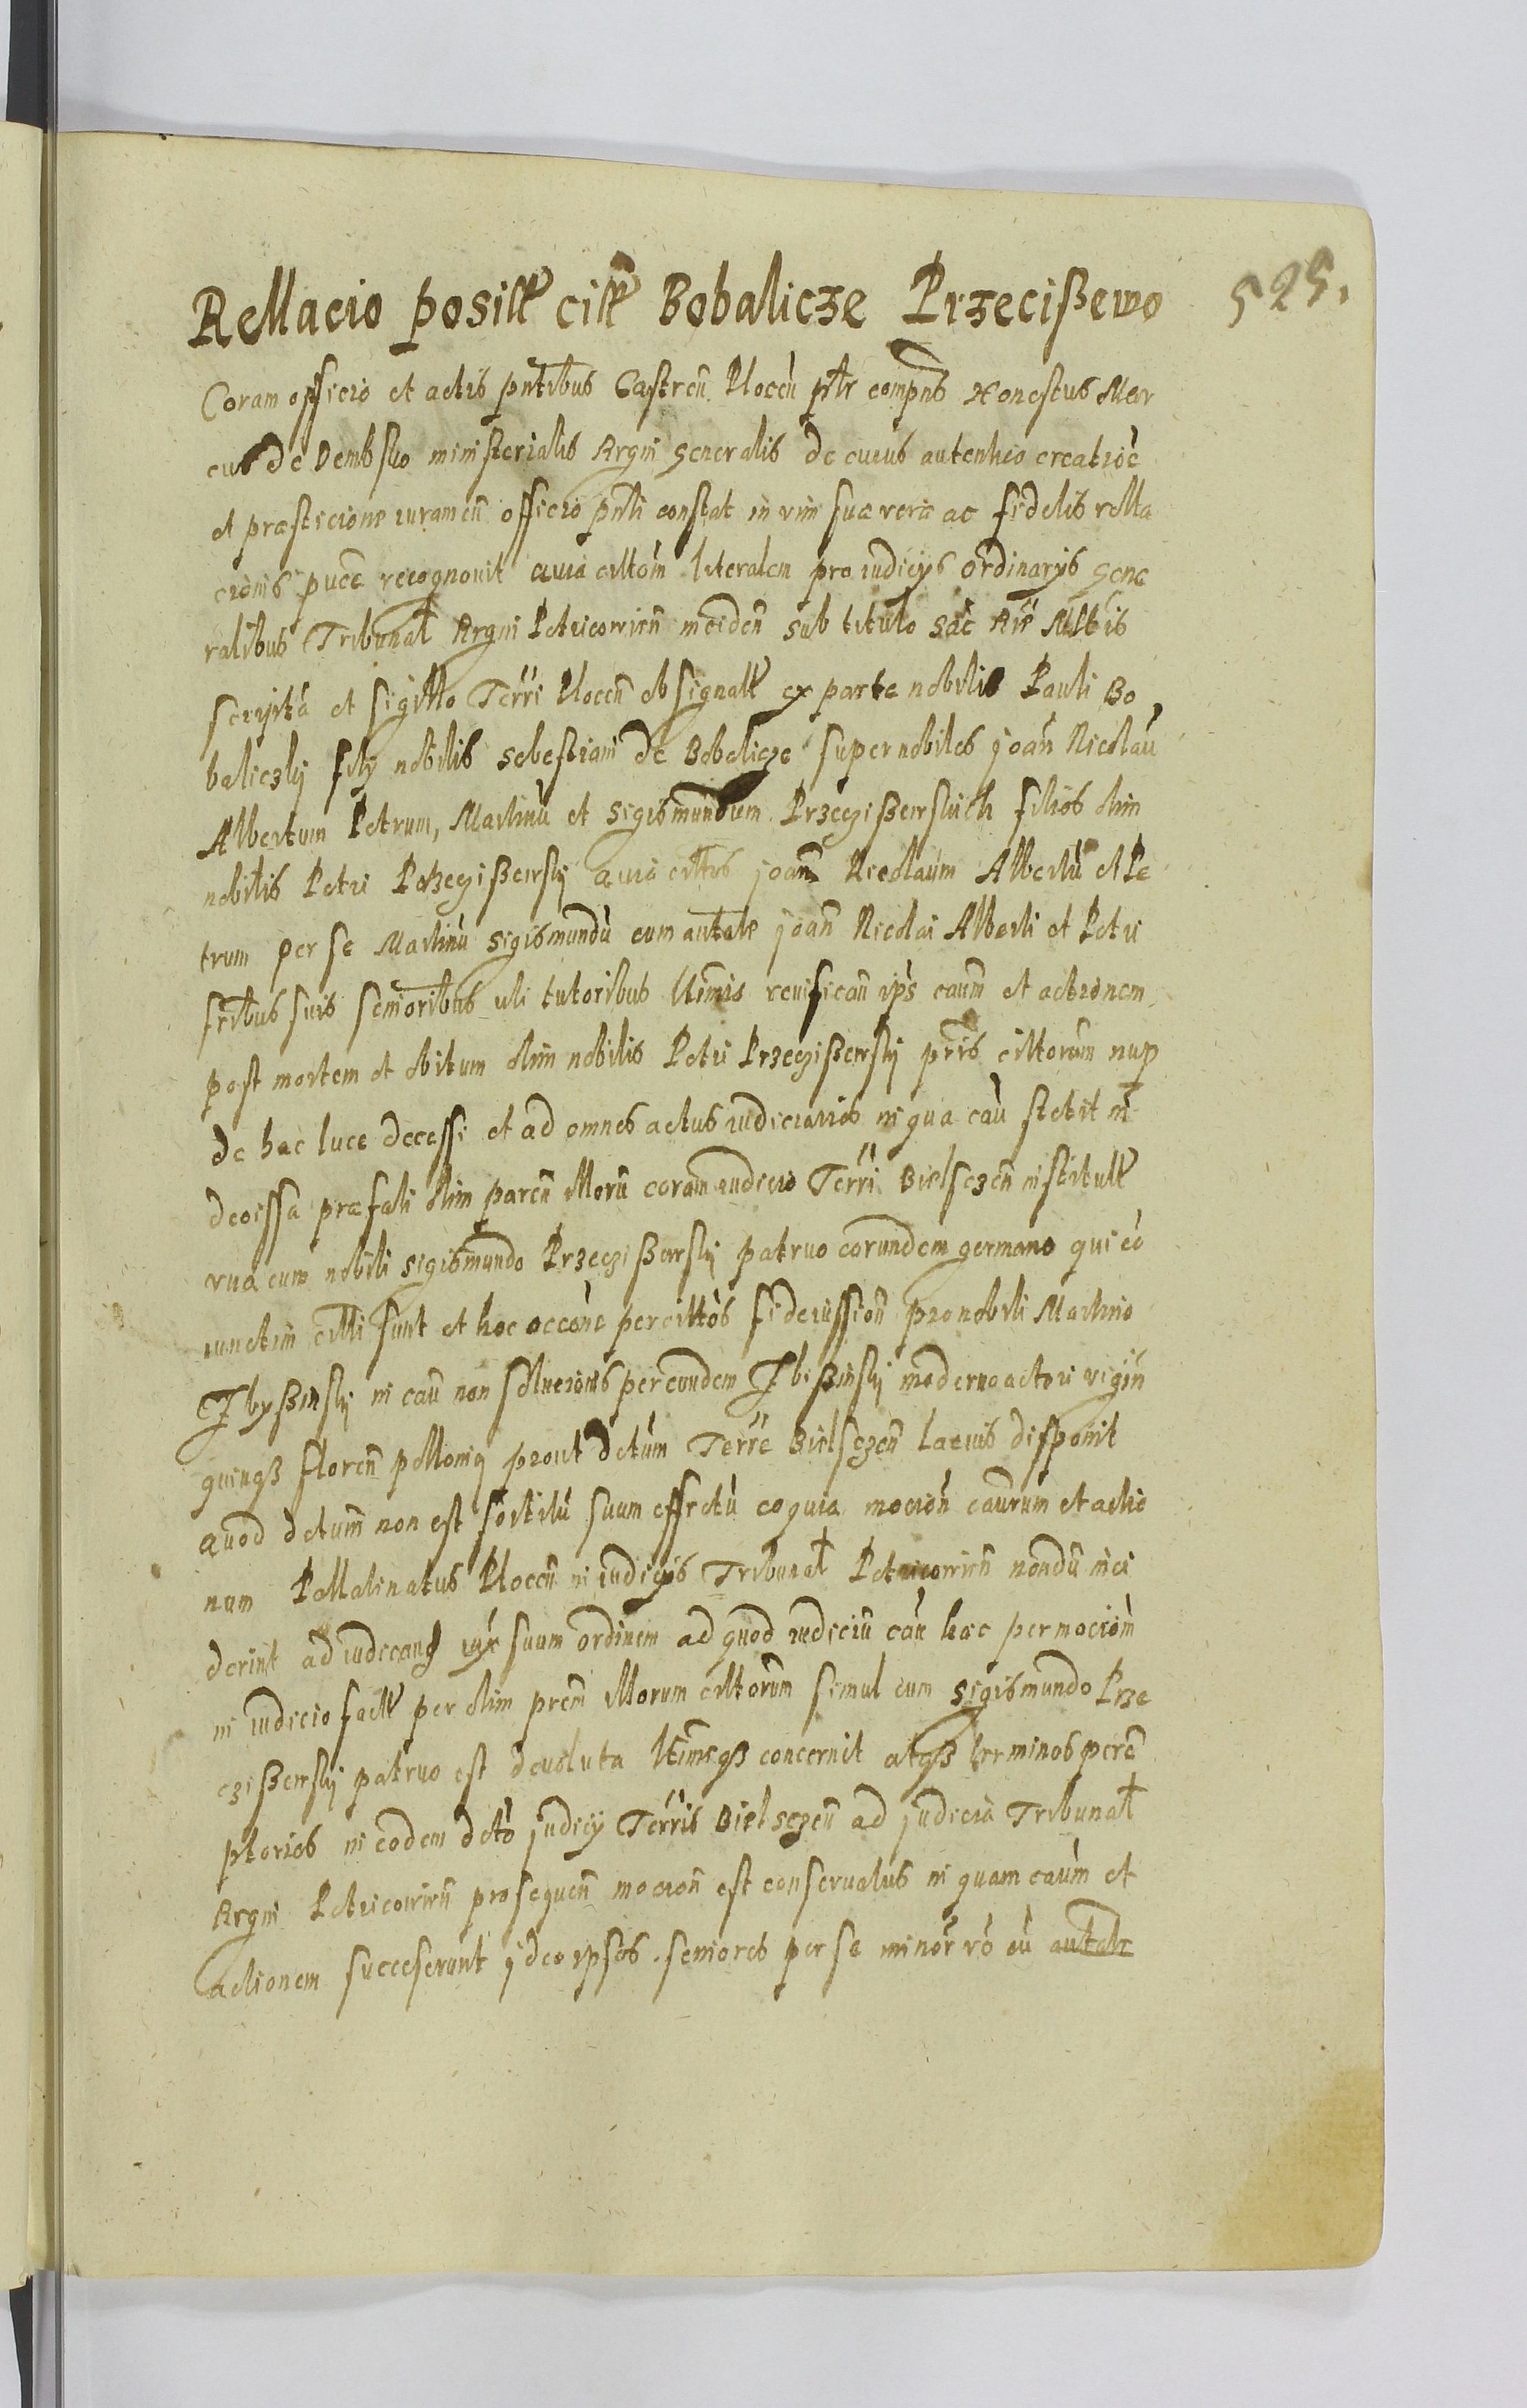 525.
Rellacio positt citt Bobalicze Przecißewo
Coram officio et actis pntibus Castren Plocen pltr compns Honestus Mar
cus de Dembsko ministerialis Regni generalis de cuius autentico creatioe
et præsticione iuramen officio pnti constat in vim suæ veræ ac fidelis rella
cionis puce recognouit quia cittom literalem pro iudicys ordinarys gene
ralibus Tribunal Regni Petricovien inciden sub titulo sac Rie Mttis
scripta et sigillo Terri Plocen obsignatt ex parte nobilis Pauli Bo
baliczky fily nobilis Sebestiani de Bobalicze super nobiles joan Nicolau
Albertum Petrum, Martinu et Sigismundum Przeczißewskich filios olim
nobilis Petri Przeczißewsky quia cittos joan Nicolaum Albertu et Pe
trum per se Martinu Sigismundu cum autate joan Nicolai Alberti et Petri
fribus suis senioribus uti tutoribus ltimis reuifican ips caum et actionem
post mortem et obitum olim nobilis Petri Przeczißewsky pris cittorum nup
de hac luce decessi et ad omnes actus iudiciarios in qua cau stetit in
decissa præfati olim paren illoru coram iudicio Terri Bielsczen institutt
vna cum nobili Sigismundo Przeczißewsky patruo eorundem germano qui co
iunctim citti sunt et hoc occone per cittos fideiussion pro nobili Martino
in cau non solucionis per eundem moderno actori vigin
quinqß floren pollonq prout dctum Terre Bielsczen latius disponit
quod dctum non est sortitu suum effectu eo quia mocion caurum et actio
num Pallatinatus Plocen in iudicys Tribunal Petricovien nondu inci
derint ad iudecand iux suum ordinem ad quod iudiciu cau hæc per mociom
in iudicio factt per olim prem illorum cittorum simul cum Sigismundo Prze
czißewsky patruo est deuoluta ltimeqß concernit atqß terminos pere
ptorios in eodem dcto judicy Terris Bielsczen ad judicia Tribunal
Regni Petricovien prosequen mocion est conseruatus in quam caum et
actionem succeserunt jdeo ipsos seniores per se minor vo cu autate